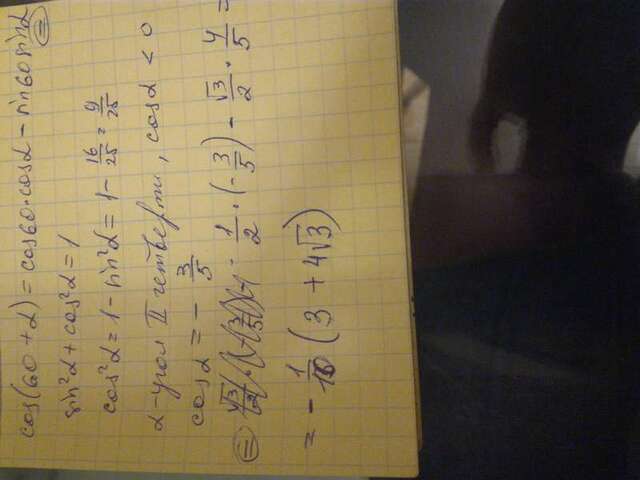 cos(60+α)=cos60·cosα-sin60sinα ⊜
sin²α+cos²α=1
cos²α=1-sin²α=1-16/25=9/25
α-угол II четверти, cosα<0
cosα=-3/5
⊜ 1/2·(-3/5)-√3/2·4/5=
=-1/10(3+4√3)